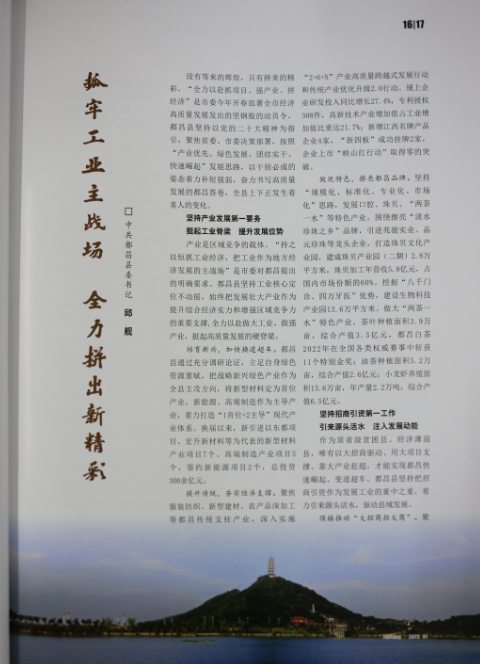 16|17
抓牢工业主战场 全力拼出新精彩
□ 中共都昌县委书记 邱舰
没有等来的辉煌，只有拼来的精
彩。“全力以赴抓项目、强产业、拼
经济”是市委今年开春部署全市经济
高质量发展发出的坚钢般的动员令。
都昌县坚持以党的二十大精神为指
引，聚焦省委、市委决策部署，按照
“产业优先、绿色发展、团结实干、
快速崛起”发展思路，以干则必成的
姿态着力补短强弱，奋力书写高质量
发展的都昌答卷，全县上下正发生着
喜人的变化。
坚持产业发展第一要务
挺起工业脊梁 提升发展位势
产业是区域竞争的载体。“持之
以恒抓工业经济，把工业作为地方经
济发展的主战场”是市委对都昌提出
的明确要求。都昌县坚持工业核心定
位不动摇，始终把发展壮大产业作为
提升综合经济实力和增强区域竞争力
的重要支撑，全力以赴做大工业、做强
产业，挺起高质量发展的硬脊梁。
培育新兴，加快换道超车。都昌
县通过充分调研论证，立足自身绿色
资源禀赋，把战略新兴绿色产业作为
全县主攻方向，将新型材料定为首位
产业，新能源、高端制造作为主导产
业，着力打造“1首位+2主导”现代产
业体系。换届以来，新引进以东都项
目、宏升新材料等为代表的新型材料
产业项目7个、高端制造产业项目5
个，签约新能源项目2个，总投资
300余亿元。
提升传统，夯实经济支撑。聚焦
服装纺织、新型建材、农产品深加工
等都昌传统支柱产业，深入实施
“2+6+N”产业高质量跨越式发展行动
和传统产业优化升级2.0行动。规上企
业研发投入同比增长27.4%，专利授权
308件，高新技术产业增加值占工业增
加值比重达21.7%；新增江西名牌产品
企业4家，“新四板”成功挂牌2家，
企业上市“映山红行动”取得零的突
破。
做优特色，擦亮都昌品牌。坚持
“规模化、标准化、专业化、市场
化”思路，发展口腔、珠贝、“两茶
一水”等特色产业。围绕擦亮“淡水
珍珠之乡”品牌，引进兆靓实业、晶
元珍珠等龙头企业，打造珠贝文化产
业园，建成珠贝产业园（二期）2.8万
平方米，珠贝加工年营收5.8亿元，占
国内市场份额的60%。挖掘“八千门
诊、四万牙医”优势，建设生物科技
产业园13.6万平方米。做大“两茶一
水”特色产业，茶叶种植面积3.9万
亩，综合产值3.5亿元，都昌白茶
2022年在全国各类权威赛事中斩获
11个特别金奖；油茶种植面积5.2万
亩，综合产值2.6亿元；小龙虾养殖面
积13.6万亩，年产量2.2万吨，综合产
值6.5亿元。
坚持招商引资第一工作
引来源头活水 注入发展动能
作为原省级贫困县、经济薄弱
县，唯有以大招商驱动、用大项目支
撑、靠大产业赶超，才能实现都昌快
速崛起、变道超车。都昌县坚持把招
商引资作为发展工业的重中之重，着
力引来源头活水，驱动县域发展。
顶格推动“大招商招大商”。聚